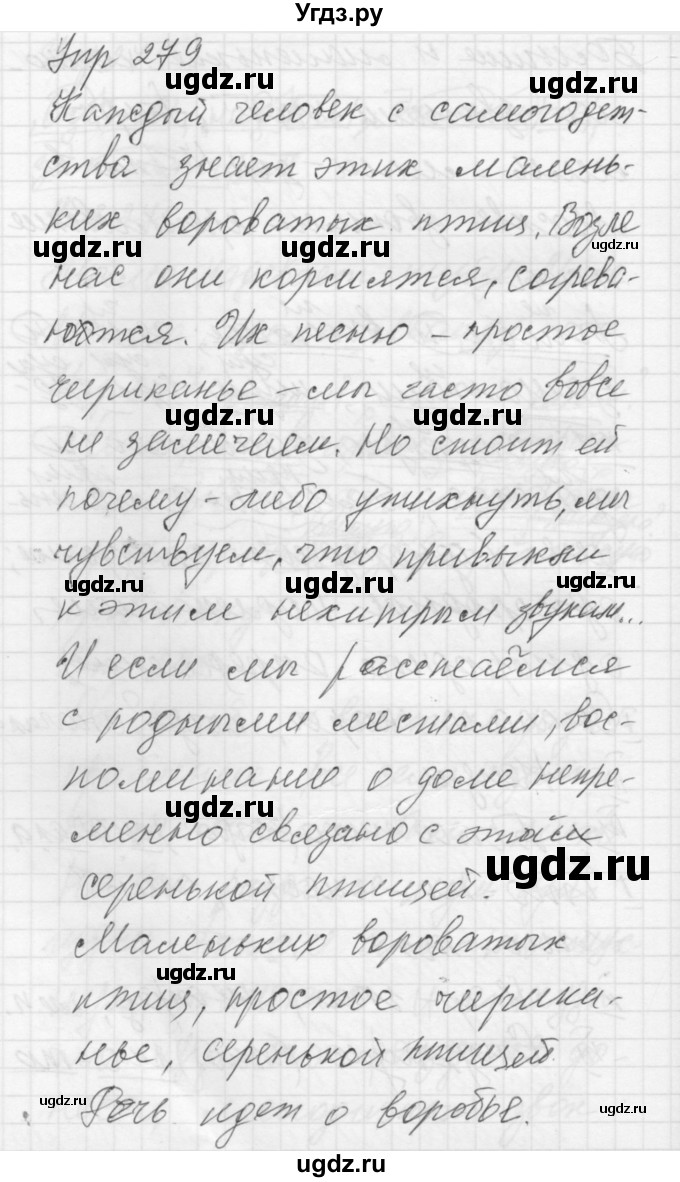 Угдз.ру
Упр 279
ugdz.ru ugdz.ru
Каждый человек с самогодет-
ства знает этих малень-
ких вороватых птиц. Возле
ugdz.ru ugdz.ru ugdz.ru
нас они кормятся, согрева-
ются. Их песню – простое
чириканье – мы часто вовсе
ugdz.ru ugdz.ru
не замечаем. Но стоит ей
почему-либо утихнуть, мы
чувствуем, что привыкли
ugdz.ru ugdz.ru ugdz.ru
к этим нехитрым звукам...
И если мы расстаёмся
с родными местами, вос-
поминание о доме непре-
ugdz.ru
менно связано с этой
ugdz.ru
серенькой птицей.
Маленьких вороватых
ugdz.ru
птиц, простое чирика-
нье, серенькой птицей
ugdz.ru ugdz.ru
Речь идет о воробье.
ugdz.ru